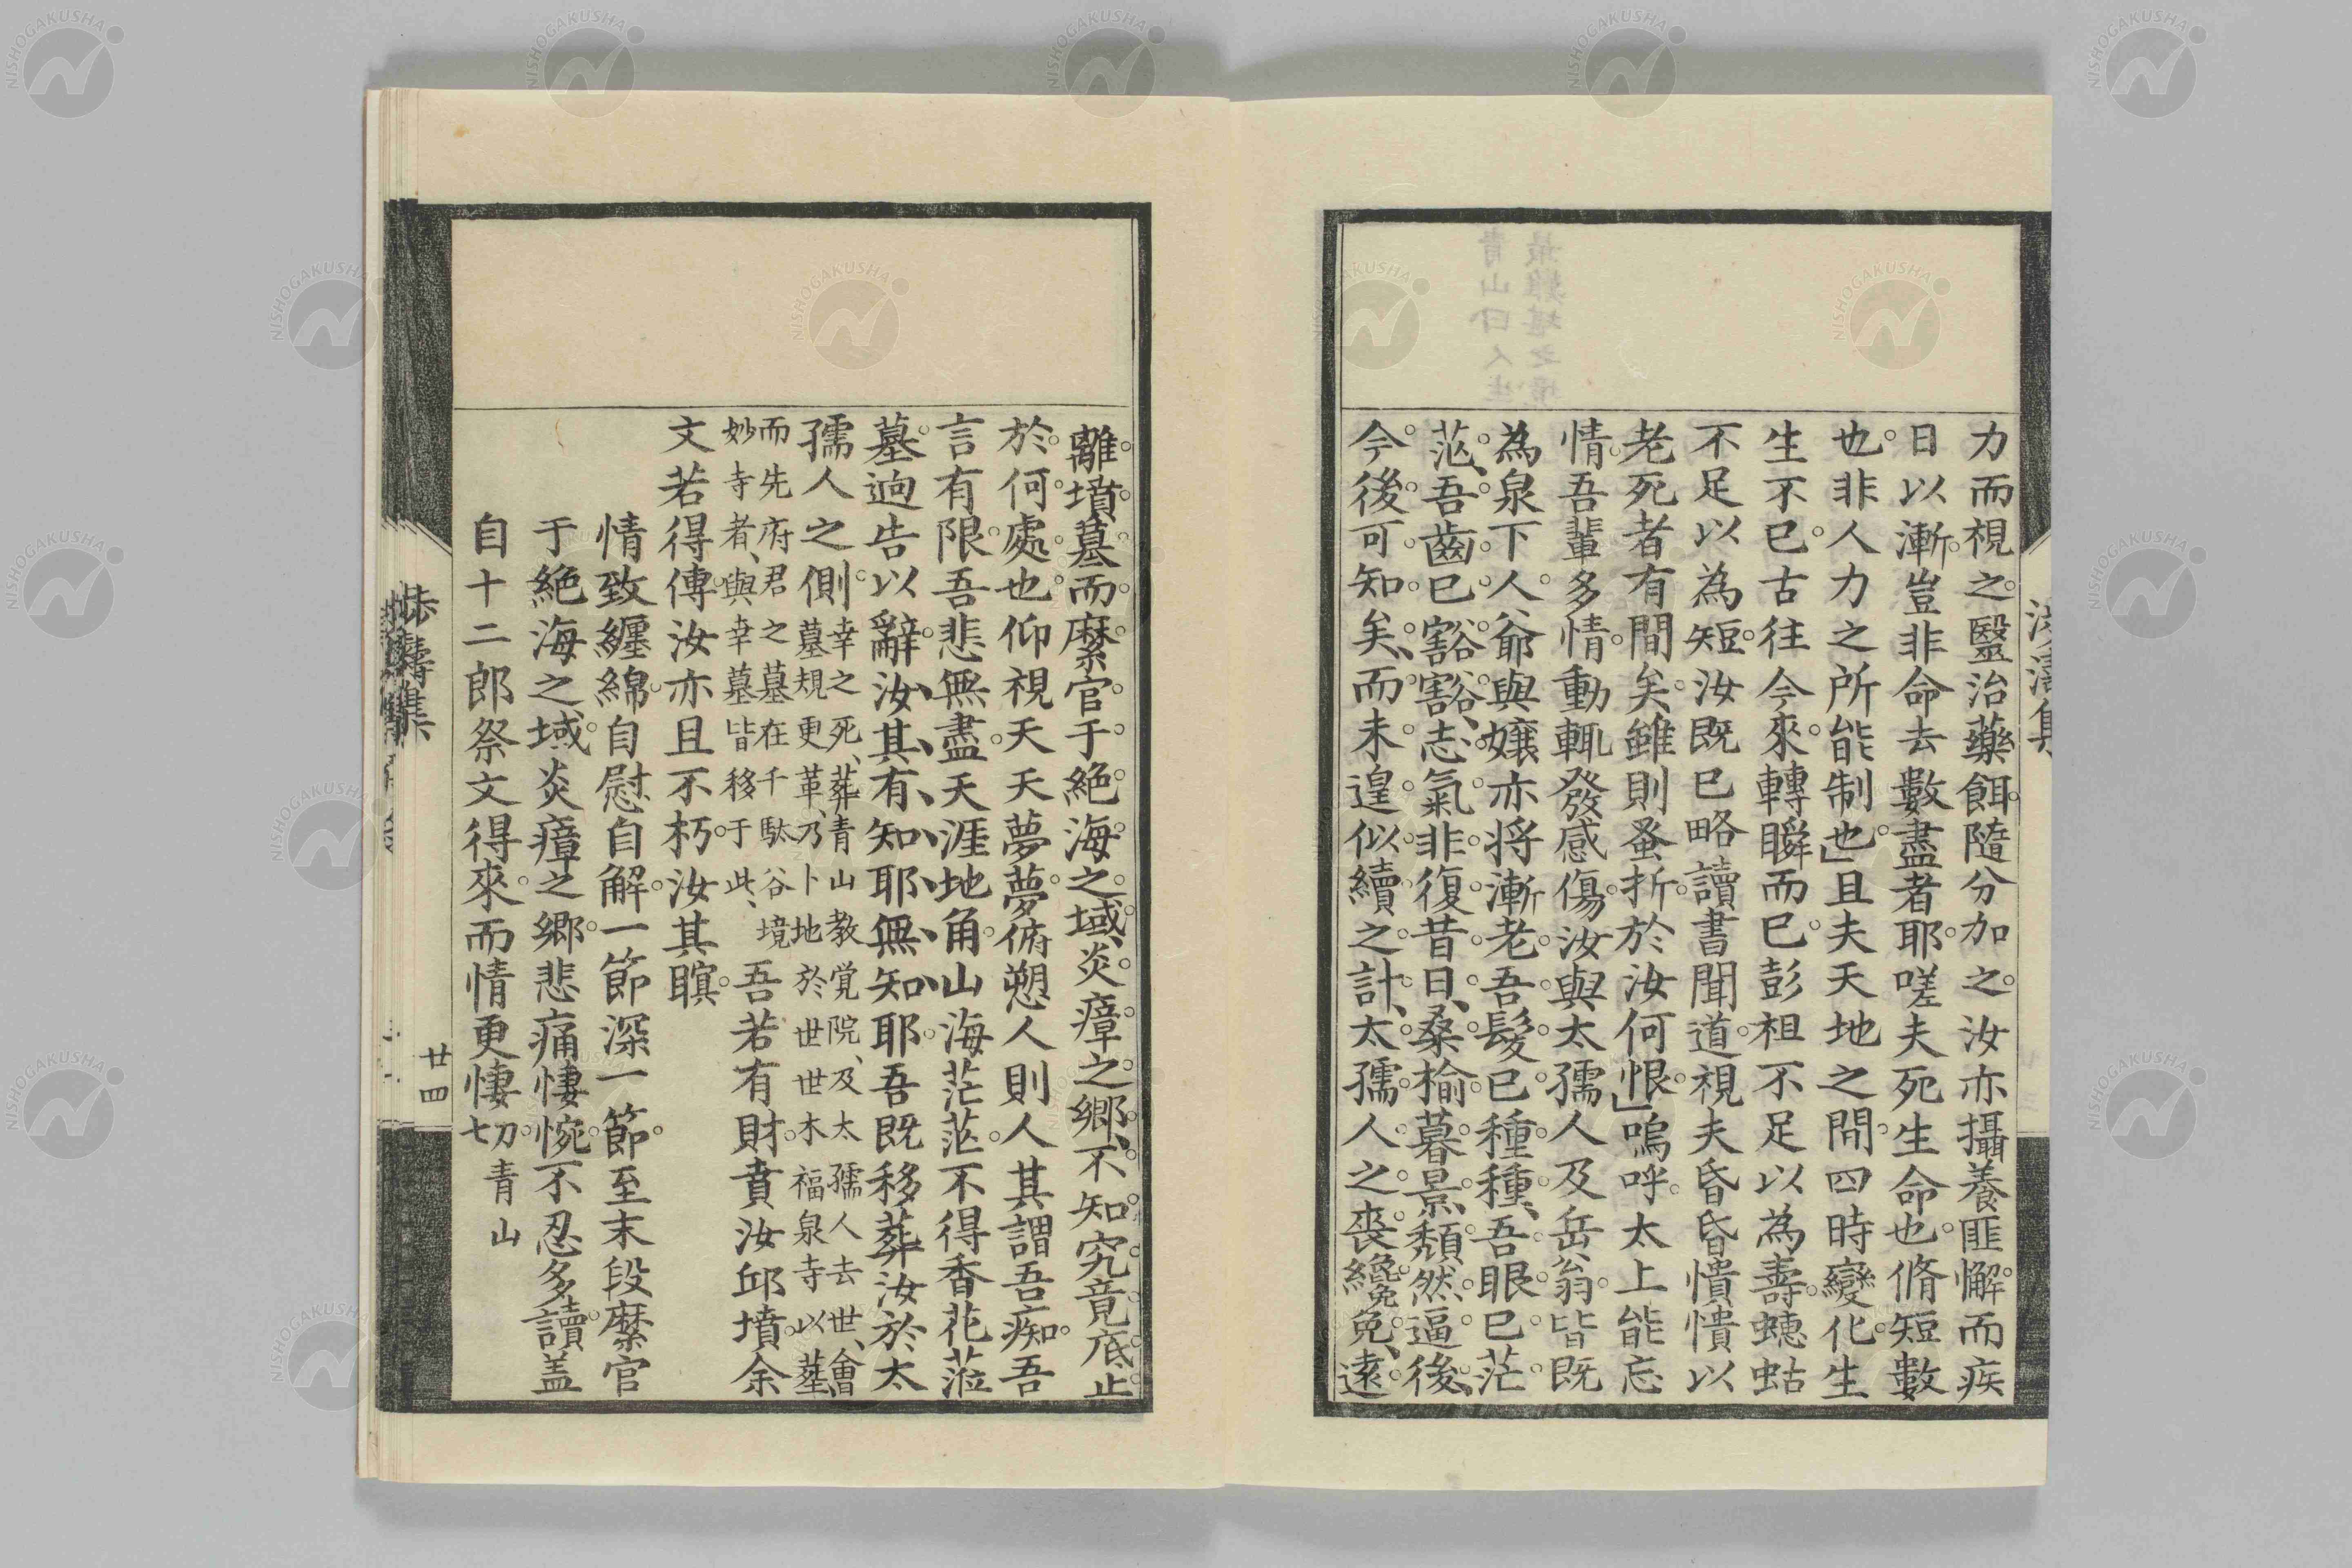 力而視之。醫治藥餌。隨分加之。汝亦攝養匪懈。而疾
日以漸。豈非命去數盡者耶。嗟夫死生命也。脩短數
也。非人力之所能制也。」且夫天地之間。四時變化。生
生不已。古往今來。轉瞬而已。彭祖不足以為壽。蟪蛄
不足以為短。汝既已略讀書聞道。視夫昏昏憒憒以
老死者有間矣。雖則蚤折。於汝何恨。」嗚呼。太上能忘
情。吾輩多情。動輒發感傷。汝與太孺人及岳翁。皆既
為泉下人。爺與孃亦将漸老。吾髮已種種、吾眼已茫
茫、吾齒已豁豁、志氣非復昔日、桑榆暮景、頹然逼後、
今後可知矣、而未遑似續之計、太孺人之喪纔免、遠
離墳墓。而縻官于絶海之域、炎瘴之郷、不知究竟底止
於何處也。仰視天天夢夢。俯愬人則人其謂吾痴。吾
言有限。吾悲無盡。天涯地角。山海茫茫。不得香花蒞
墓。逈告以辭。汝其有知耶。無知耶。吾既移葬汝於太
孺人之側。幸之死、葬青山教覚院、及太孺人去世、會
墓規更革、乃卜地於世世木福泉寺以葬、
而先府君之墓在千駄谷境
妙寺者、與幸墓皆移于此、
吾若有財。賁汝邱墳。余
文若得傳。汝亦且不朽。汝其瞑。
情致纏綿。自慰自解。一節深一節。至末段縻官
于絶海之域。炎瘴之郷。悲痛悽惋。不忍多讀。盖
自十二郎祭文得來。而情更悽切。青山
廿四